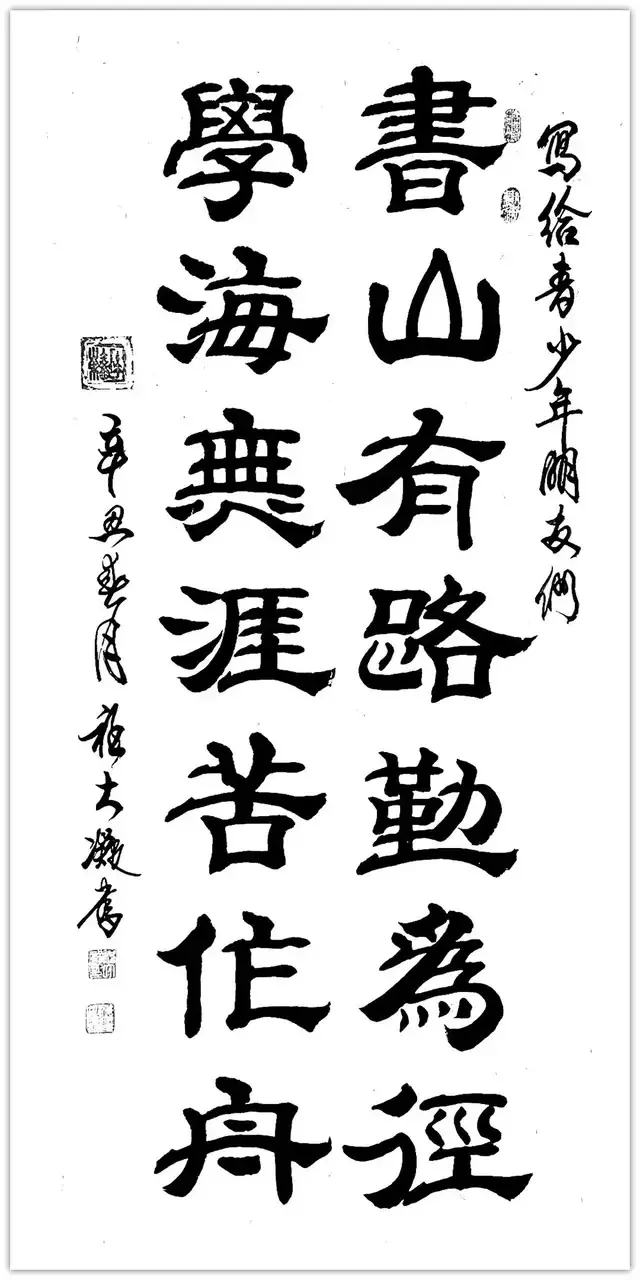 寫給青少年朋友們
書山有路勤爲徑
學海無涯苦作舟
辛巳春月大凝書